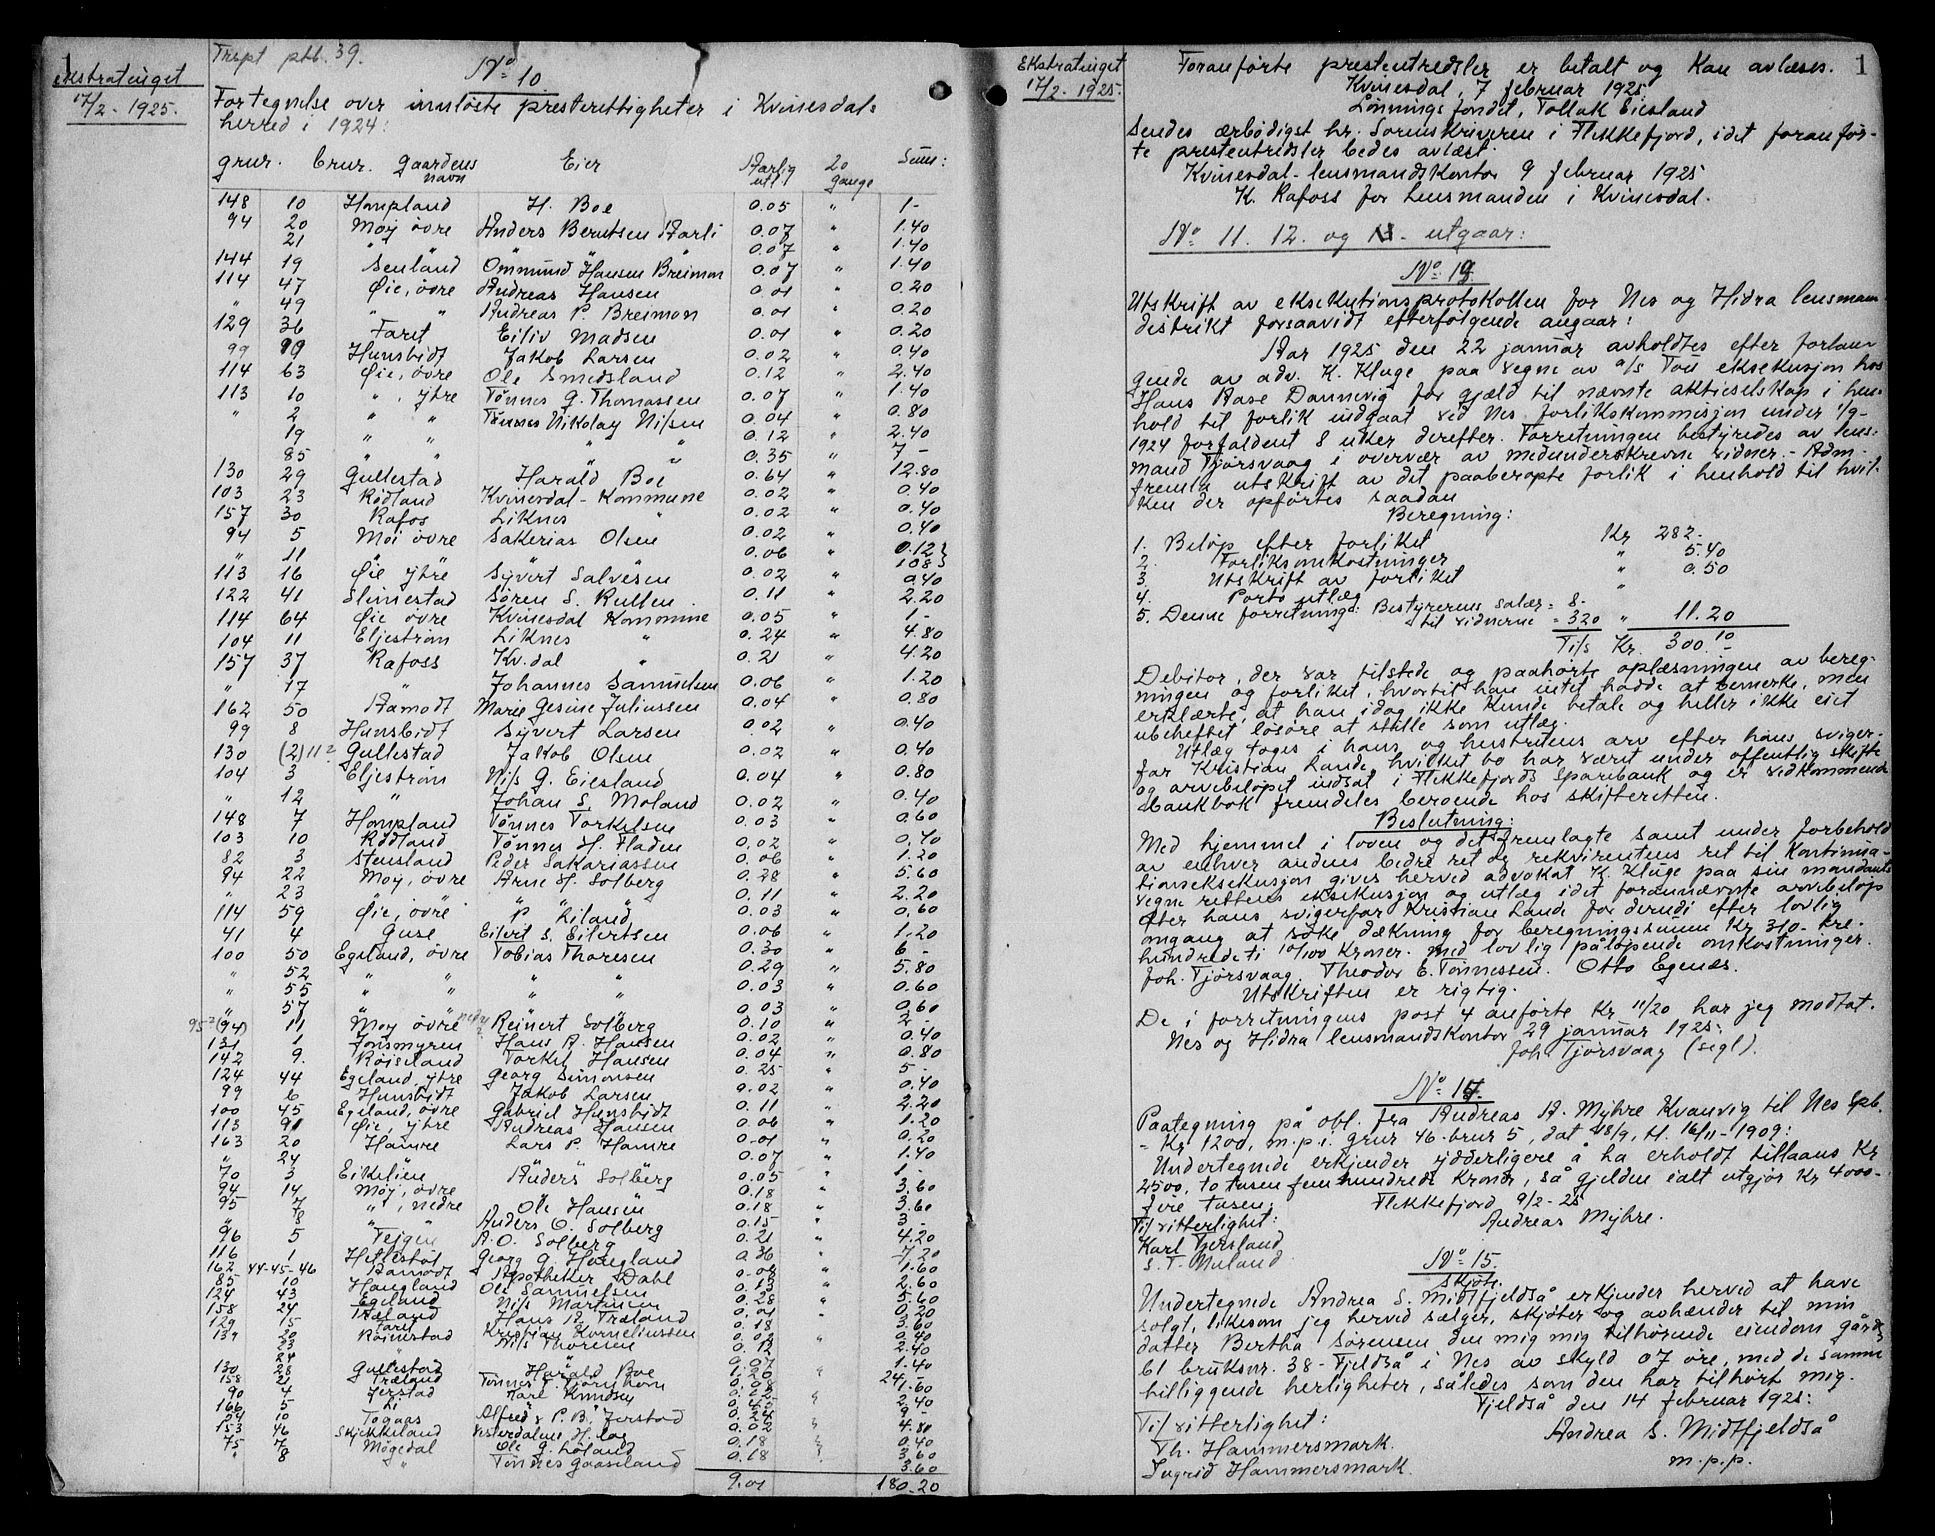 1
Ekstratinget
17/2 - 1925.
ptb. 39.
No 10
Fortegnelse over innløste presterettigheter i Kvinesdals
herred i 1924:
gnr. bnr. gaardens navn Eier Aarlig utl. 20 gange Sum:
148 10 Hompland H. Boe 0.05 " 1-
94 20 Moy övre Anders Berntsen Aarli 0.07 " 1.40
21 " " " 0.07 " 1.40
144 19 Senland Ommund Hansen Breimon 0.07 " 1.40
114 47 Øie, övre Andreas Hansen 0.01 " 0.20
" 49 " " Andreas P. Breimon 0.01 " 0.20
129 36 Faret Eiliv Madsen 0.01 " 0.20
99 99 Hunsbidt Jakob Larsen 0.02 " 0.40
114 63 Øie, övre Ole Smedsland 0.12 " 2.40
113 10 " , ytre Tönnes G. Thomassen 0.07 " 1.40
" 2 " " Tönnes Nikolay Nilsen 0.04 " 0.80
19 " " " " 0.12 " 2.40
85 " " " " 0.35 " 7 -
130 29 Gullestad Harald Boe 0.64 " 12.80
103 23 Rødland Kvinesdal - Kommune 0.02 " 0.40
157 30 Rafos Liknes " 0.02 " 0.40
94 5 Moi övre Sakerias Olsen 0.02 " 0.40
" 11 " " " 0.06 " 0.12}
108}
113 16 Øie ytre Syvert Salvesen 0.02 " 0.40
122 41 Slimestad Sören S. Rullen 0.11 " 2.20
114 64 Øie övre Kvinesdal Kommune 0.05 " 1 -
104 11 Eljeström Liknes " 0.24 " 4.80
157 37 Rafoss Kv.dal " 0.21 " 4.20
" 17 " Johannes Samuelsen 0.06 " 1.20
162 50 Aamodt Marie Gesine Juliussen 0.04 " 0.80
99 8 Hunsbidt Syvert Larsen 0.02 " 0.40
130 (2) 11? Gullestad Jakob Olsen 0.02 " 0.40
104 3 Eljeström Nils G. Eiesland 0.04 " 0.80
" 12 " Johan S. Moland 0.02 " 0.40
148 7 Hompland Tönnes Torkelsen 0.03 0.60
103 10 Rødland Tönnes H. Fladen 0.02 " 0.40
82 3 Stensland Peder Sakariassen 0.06 " 1.20
94 22 Moy, övre Arne H. Solberg 0.28 " 5.60
" 23 " " " " 0.11 " 2.20
114 59 Øie, övre P. Liland 0.03 " 0.60
41 4 Guse Eilert S. Eilertsen 0.06 " 1.20
100 50 Egeland, övre Tobias Thoresen 0.30 " 6 -
" 52 " " " " 0.29 " 5.80
" 55 " " " " 0.03 " 0.60
" 57 " " " " 0.03 " 0.60
95? (94) 11 Moy övre nedre? Reinert Solberg 0.10 " 2 -
131 1 Jonsmyren Hans A. Hansen 0.02 " 0.40
142 9. Röiseland Torkel Hansen 0.04 " 0.80
124 44 Egeland, ytre Georg Simonsen 0.25 " 5 -
99 6 Hunsbidt Jakob Larsen 0.02 " 0.40
100 45 Egeland, övre Gabriel Hunsbidt 0.11 " 2.20
113 91 Øie, ytre Andreas Hansen 0.06 " 1.20
163 20 Hamre Lars P. Hamre 0.01 " 0.20
" 24 " " 0.07 " 1.40
70 3 Eikelien Anders Solberg 0.05 " 1 -
94 14 Moy, övre " " 0.18 " 3.60
95 7 " , nedre Ole Hansen 0.18 " 3.60
" 8 " " Anders O. Solberg 0.15 " 3 -
96 5 Tejgen A. O. Solberg 0.21 " 4.20
116 1 Hellestöl Georg G. Haugland 0.36 " 7.20
162 44-45-46 Aamodt Apotheker Dahl 0.08 " 1.60
85 10 Haugland Ole Samuelsen 0.13 " 2.60
124 43 Egeland Nils Martinsen 0.28 " 5.60
158 24 Træland Hans A. Træland 0.01 " 0.20
129 15 Faret Kristian Korneliussen 0.18 3.60
20 Röinestad Nils Thoresen 0.02 " 0.40
23 0.12 2.40
24 " " 0.07 1.40
130 28 Gullestad Harald Boe 1.20 " 24.-
158 21 Træland Tönnes T. Tjörnhom 0.08 1.60
90 4 Jerstad Karl Knudsen " 2.40
166 5 Li 9 -
54 10 Togaas Alfred & P. B. Jerstad 0.24 " 4.80
153 46 Skjekkeland Vesterdalens H. lag 0.02 0.40
75 7 Mögedal Ole G. Löland 0.18 " 3.60
" 8 " Tönnes Gaaseland 0.18 " 3.60
9.01 180.20
Ekstratinget
17/2 - 1925.
1
Foranførte presteutredsler er betalt og kan avlæses.
Kvinesdal, 7 februar 1925
Lönningsfondet, Tollak Eiesland
Sendes ærbødigst hr. Sorenskriveren i Flekkefjord, idet foranför-
te presteutredsler bedes avlæst.
Kvinesdal - lensmandskontor 9 februar 1925
K. Rafoss for lensmanden i Kvinesdal.
No 11. 12. og 13. utgaar:
No 13.
Utskrift av eksekutionsprotokollen for Nes og Hidra lensmans
distrikt forsaavidt efterfølgende angaar:
Aar 1925 den 22 januar avholdtes efter forlan-
gende av adv. K. Kluge paa vegne av a/s Tou eksekusjon hos
Hans Aase Dannevig for gjæld til nævnte aktieselskap i hen-
hold til forlik indgaat ved Nes forlikskommisjon under 1/9-
1924 forfaldent 8 uker derefter. Forretningen bestyredes av lens-
mand Tjörsvaag i overvær av medunderskrevne vidner. - Adm.
fremla utskrift av det paaberopte forlik i henhold til hvil-
ken der opførtes saadan
Beregning:
1. Belöp efter forliket Kr 282.-
2. Forliksomkostninger " 5.40
3. Utskrift av forliket " 0.50
4. Porto utlæg "
5. Denne forretning: Bestyrerens salær = 8.-
til vidnerne = 3.20 " 11.20
Tils Kr. 300.10
Debitor, der var tilstede og paahørte oplæsningen av bereg-
ningen og forliket, hvortil han intet hadde at bemerke, men
erklærte, at han idag ikke kunde betale og heller ikke eiet
ubeheftet lösöre at stille som utlæg.
Utlæg toges i hans og hustruens arv efter hans sviger-
far Kristian Lande hvilket bo har været under offentlig skifte
og arvebeløpet indsat i Flekkefjords Sparebank og er vedkommende
bankbok fremdeles beroende hos skifteretten.
Beslutning:
Med hjemmel i loven og det fremlagte samt under forbehold
av enhver andens bedre ret og rekvirentens ret til kontinua-
tionseksekusjon gives herved advokat K. Kluge paa sin mandants
vegne rettens eksekusjon og utlæg i det forannævnte arvebeløp
efter hans svigerfar Kristian Lande for derudi efter lovlig
omgang at söke dækning for beregningssummen Kr 310.- tre-
hundredeti 10/100 Kroner. med lovlig påløpende omkostninger.
Joh. Tjörsvaag. Theodor E. Tönnessen. Otto Egenæs.
Utskriften er rigtig.
De i forretningens post 4 anførte Kr 11/20 har jeg modtat.
Nes og Hidra lensmandskontor 29 januar 1925:
Joh. Tjörsvaag (segl).
No 14.
Paategning på obl. fra Andreas A. Myhre Kvanvig til Nes Spb.
- Kr 1200, m.p.i. gnr 46. bnr 5, dat 18/9, tl. 16/11-1909:
Undertegnede erkjender ydderligere å ha erholdt tillaans Kr
2500, to tusen fem hundrede Kroner, så gjelden ialt utgjör Kr 4000-
fire tusen. Flekkefjord 9/2-25
Til vitterlighet: Andreas Myhre.
Karl Tjersland
S. T. Nuland
No 15.
Skjöte.
Undertegnede Andrea S. Midtfjeldså erkjender herved at have
solgt, likesom jeg herved sælger, skjöter og avhænder til min
datter Bertha Sörensen den mig mig tilhörende eiendom gårds
61 bruksnr. 38 - Fjeldså i Nes av skyld 07 öre, med de samme
tilliggende herligheter, således som den har tilhört mig.
Fjeldså den 14 februar 1925:
Til vitterlighet: Andrea S. Midtfjeldså
Th. Hammersmark. m.p.p.
Ingrid Hammersmark.